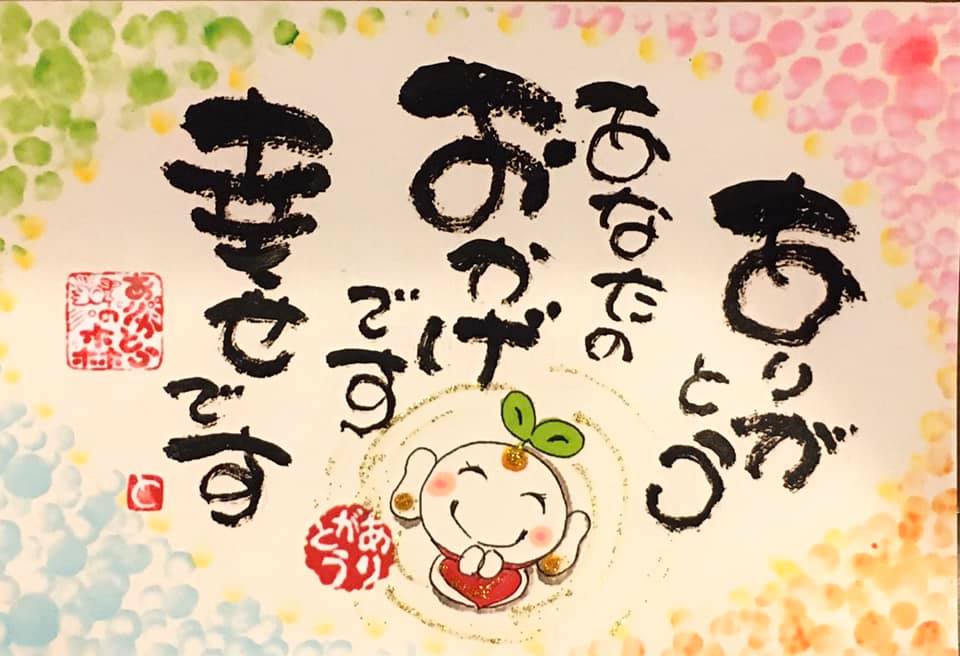 ありがとう
あなたの
おかげ
です
幸せです
ありがとう
の森
ありがとう
と